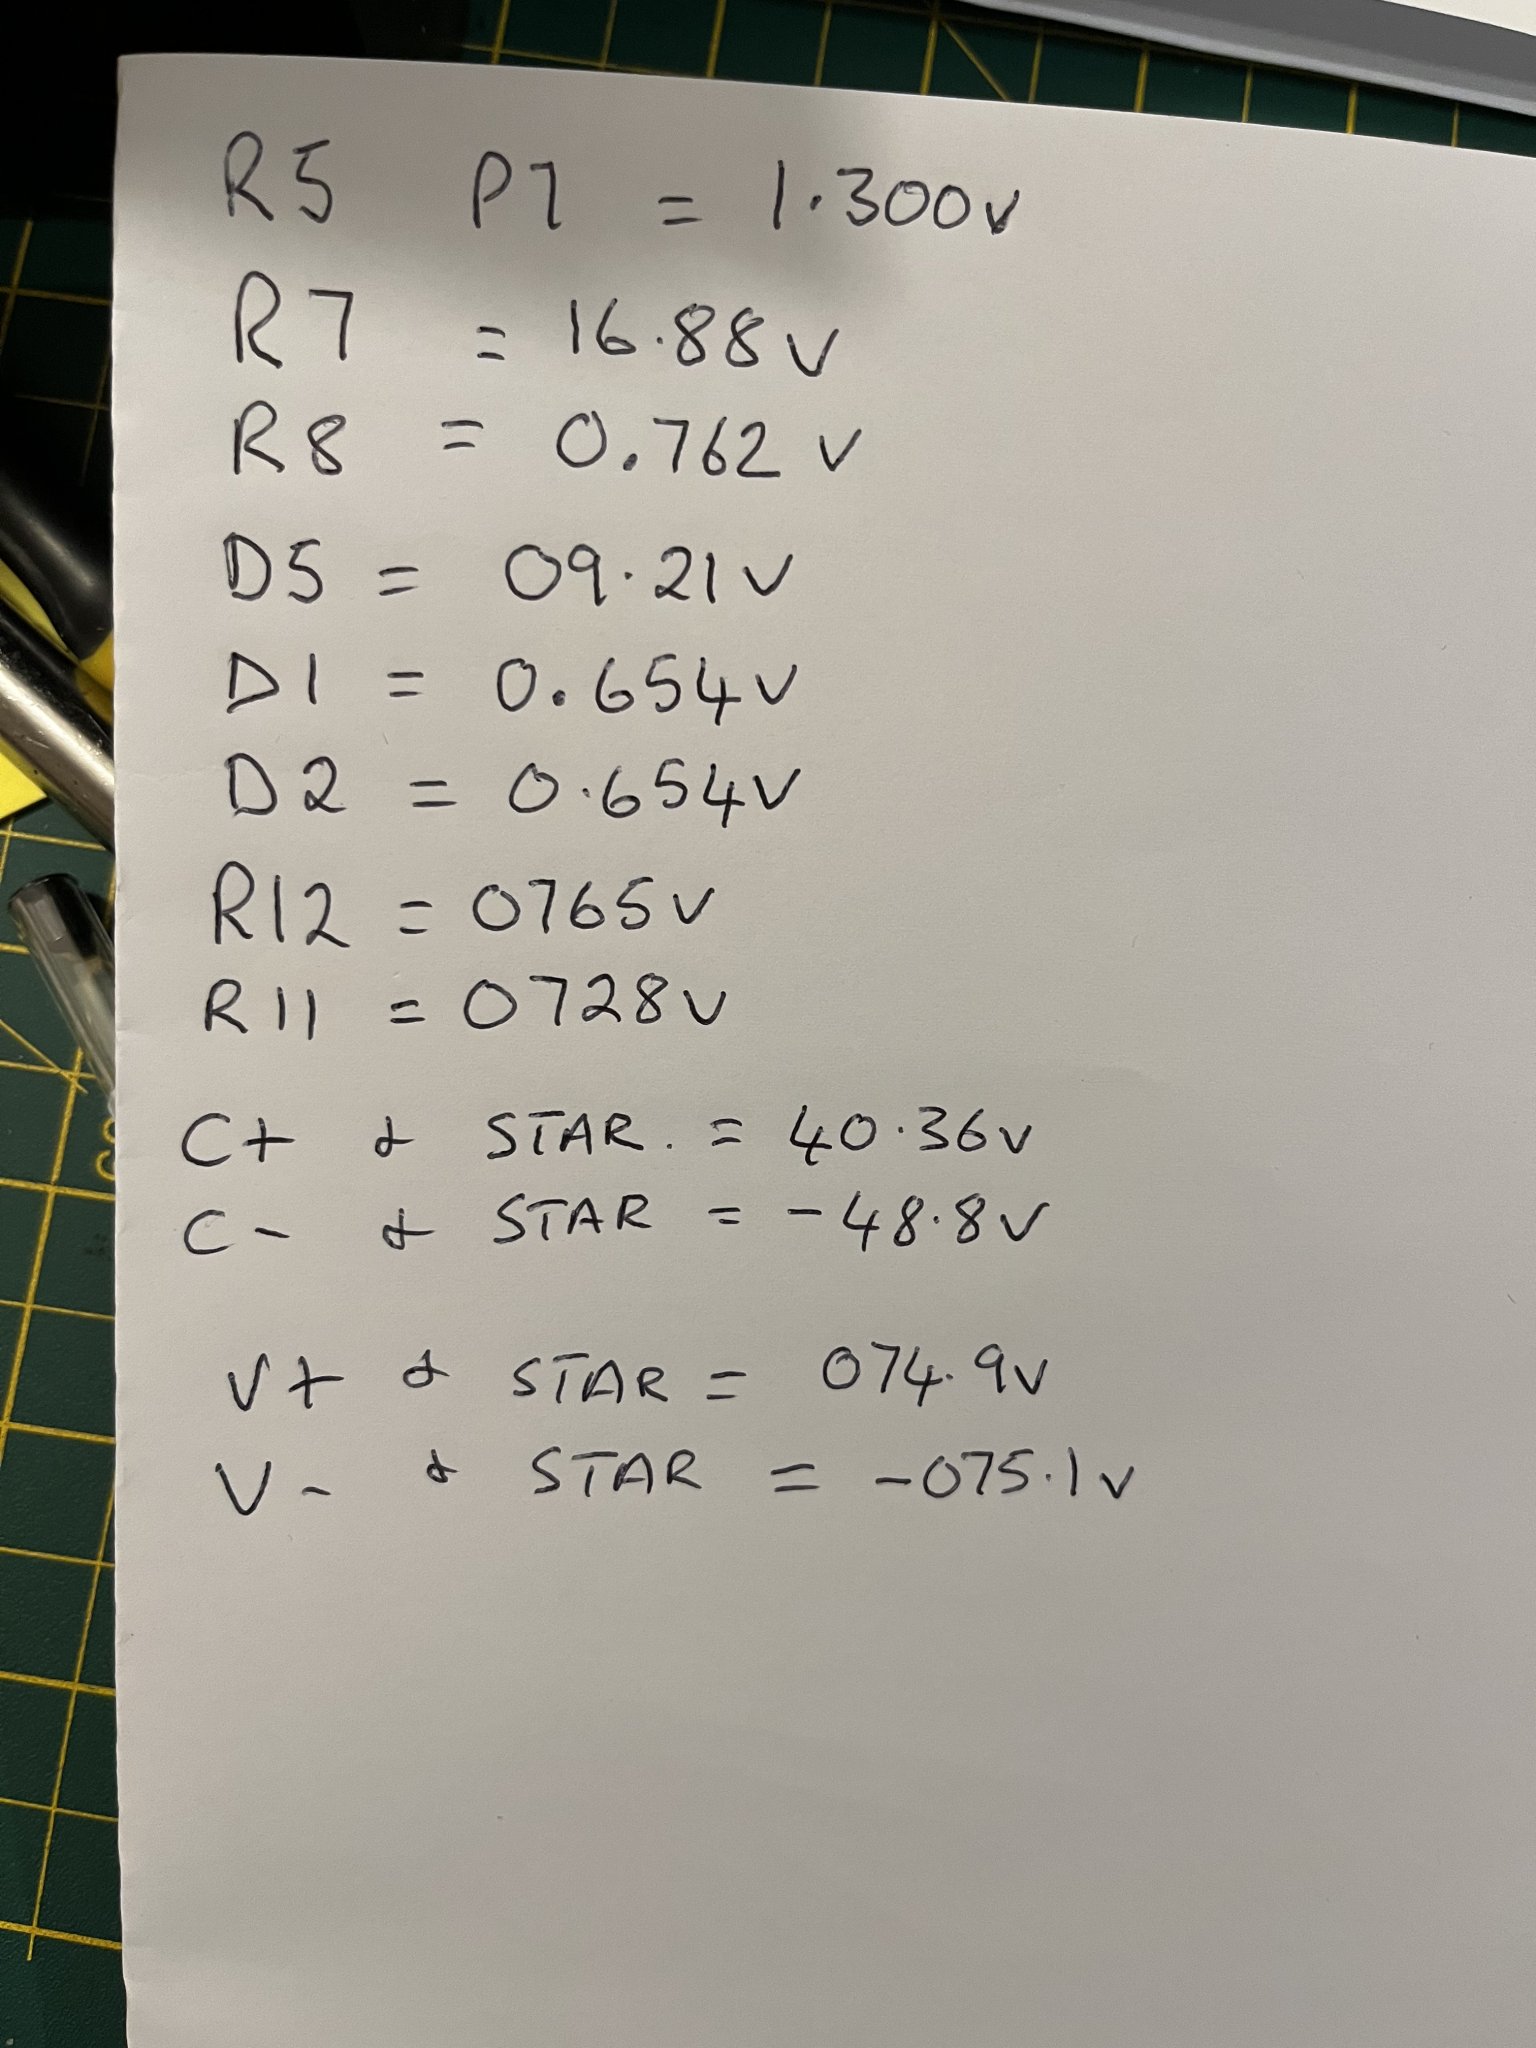 R5 P1 = 1.300v
R7 = 16.88v
R8 = 0.762 v
D5 = 09.21v
D1 = 0.654v
D2 = 0.654v
R12 = 0765v
R11 = 0728v
C+ & STAR. = 40.36v
C- & STAR = -48.8v
V+ & STAR = 074.9v
V- & STAR = -075.1v